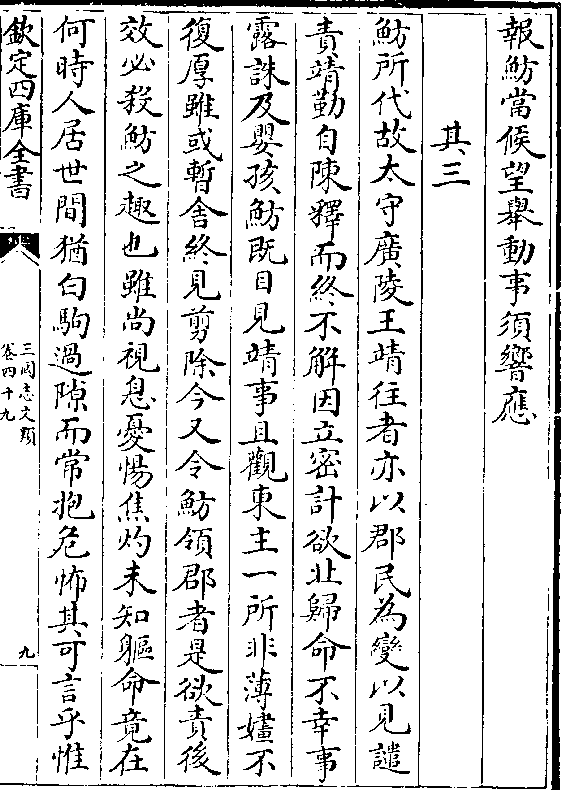 報鲂當候望舉動事須響應
其三
鲂所代故太守廣陵王靖往者亦以郡民為變以見譴
責靖勤自陳釋而終不解因立密計欲北歸命不幸事
露誅及嬰孩鲂既目見靖事且觀東主一所非薄嫿不
復厚雖或暫舍終見剪除今又令鲂領郡者是欲責後
效必殺鲂之趣也雖尚視息憂惕焦灼未知軀命竟在
何時人居世間猶白駒過隙而常抱危怖其可言乎惟
欽定四庫全書
三國志文類
卷四十九
九